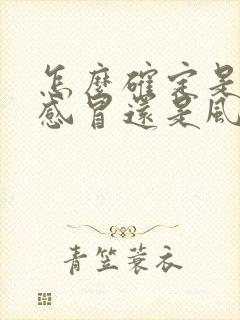 怎麼確定是
感冒還是風
青笠蓑衣